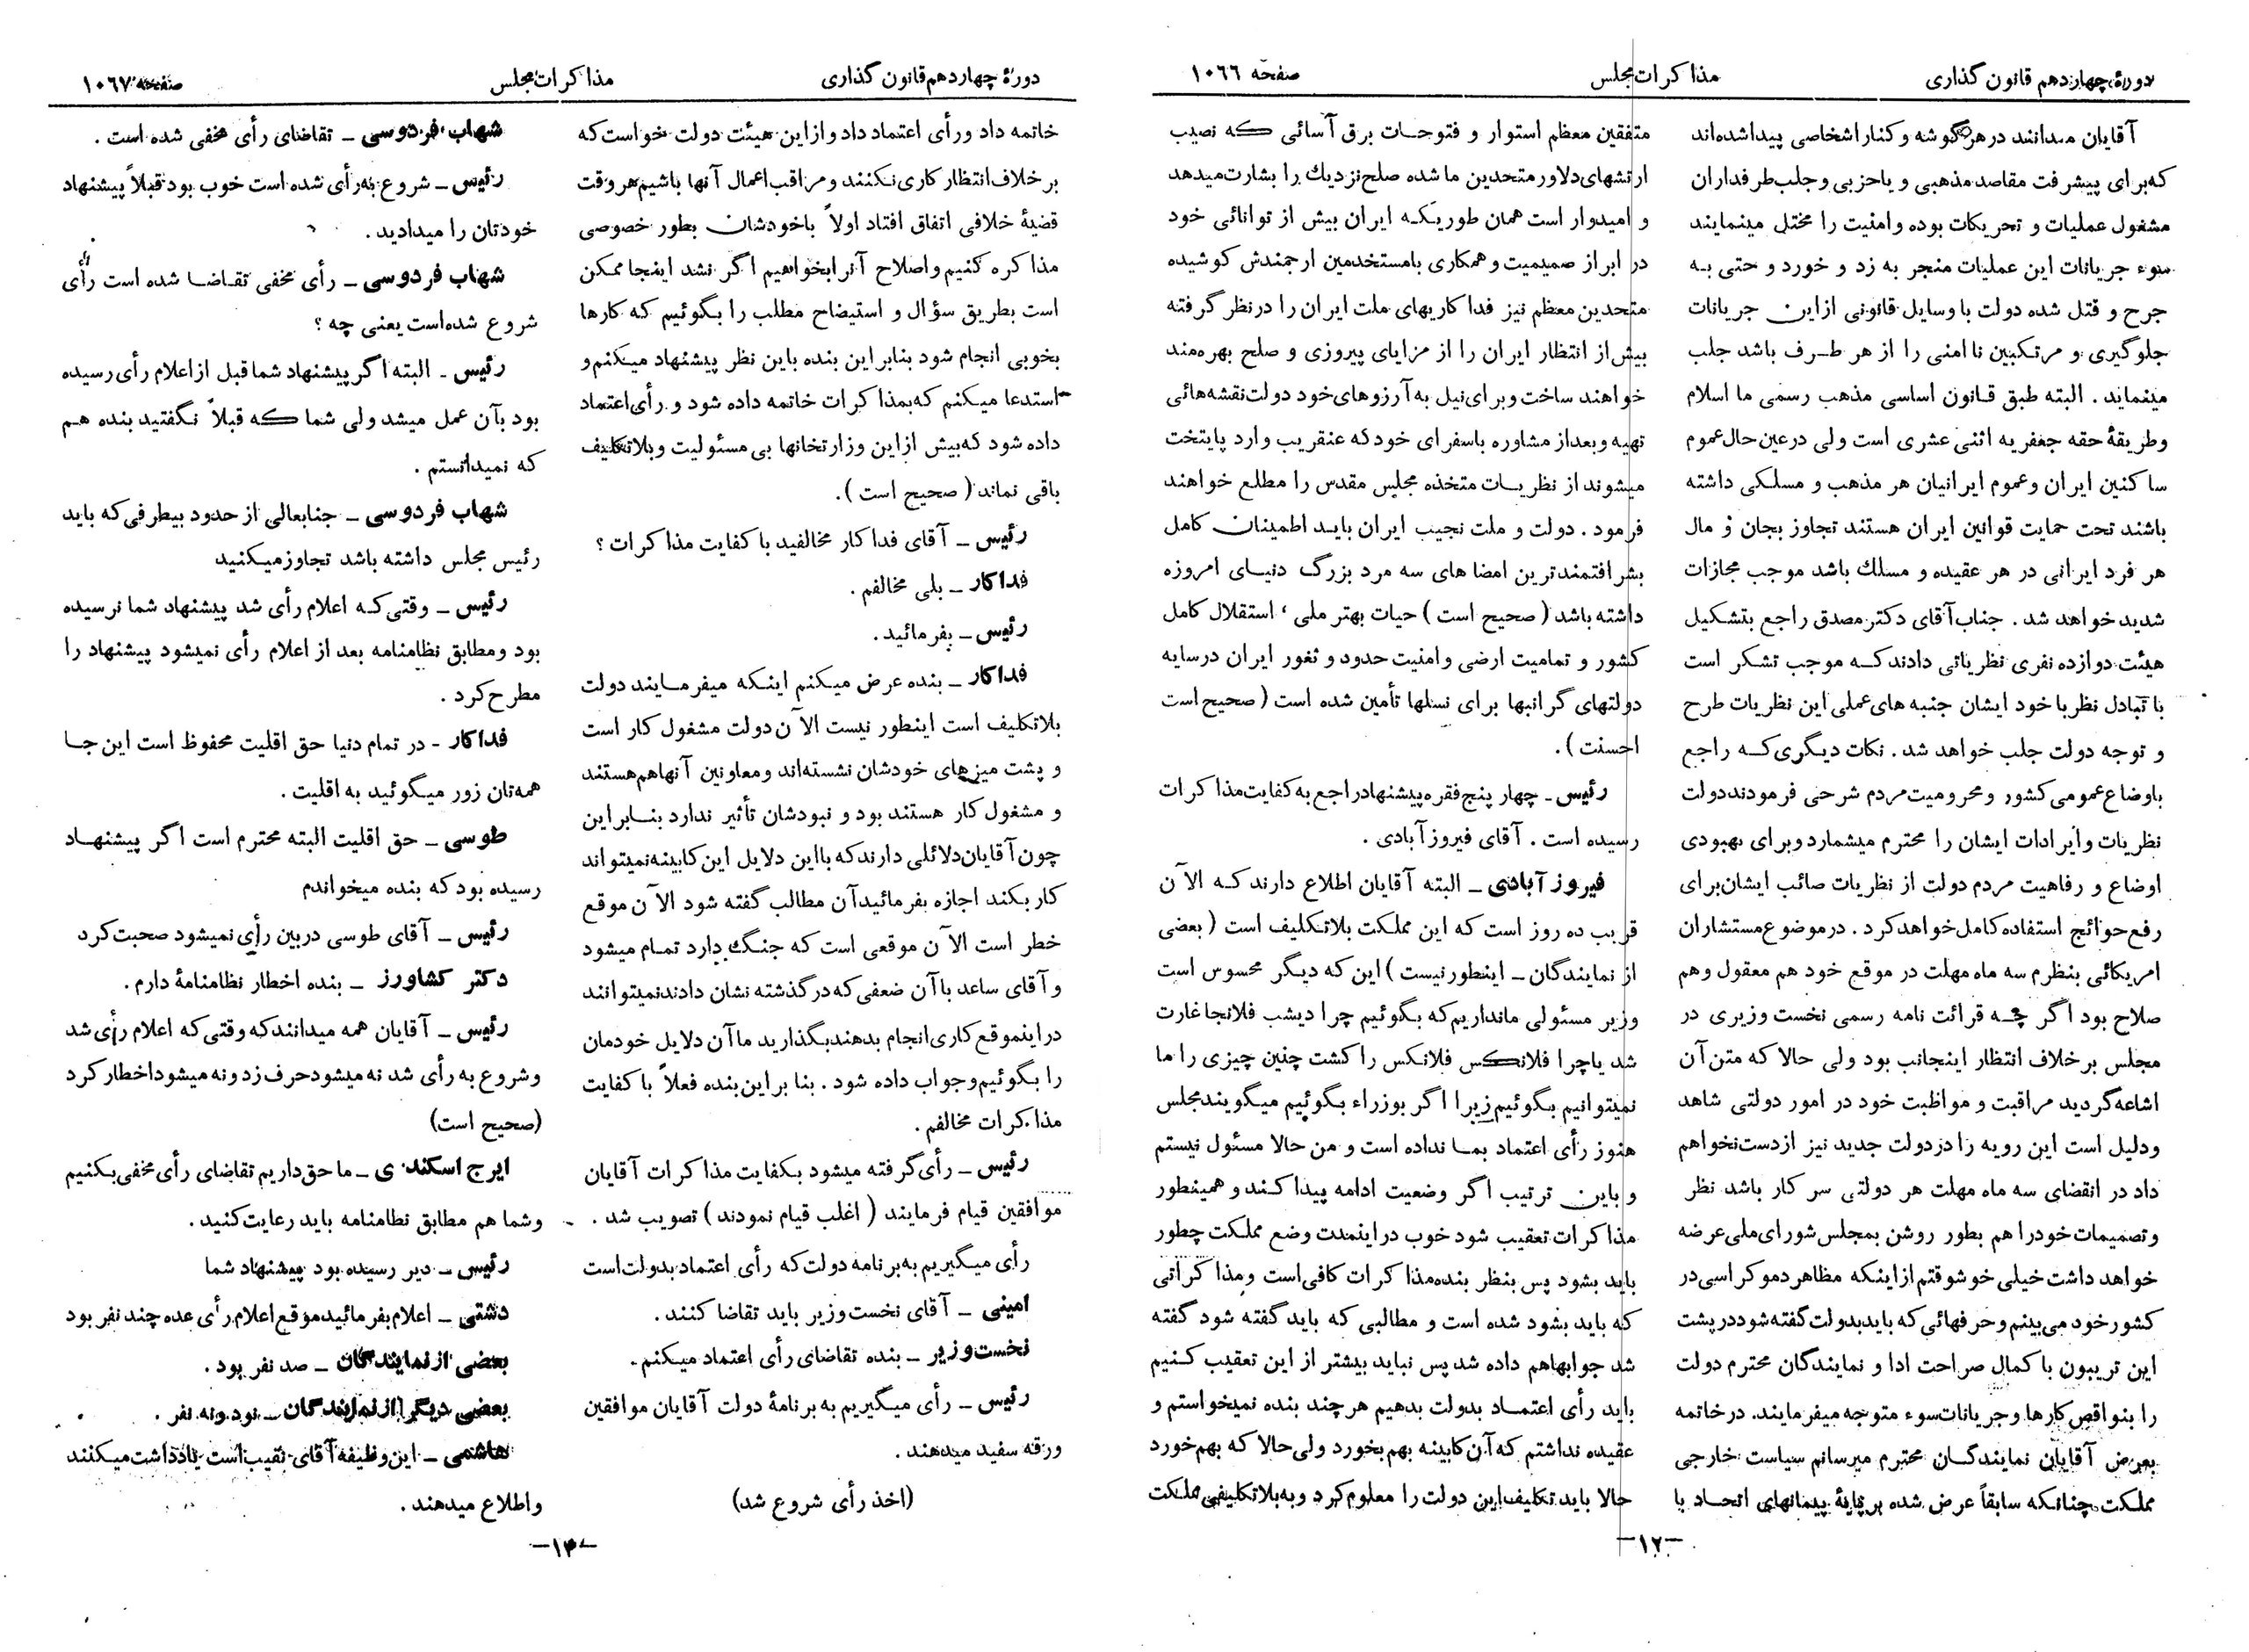 دورهٔ چهاردهم قانون گذاری
مذاکرات مجلس
صفحه ۱۰۶۶
آقایان میدانند در هر گوشه و کنار اشخاصی پیدا شده‌اند
که برای پیشرفت مقاصد مذهبی و یا حزبی و جلب طرفداران
مشغول عملیات و تحریکات بوده و امنیت را مختل مینمایند
سوء جریانات این عملیات منجر به زد و خورد و حتی به
جرح و قتل شده دولت با وسایل قانونی از این جریانات
جلوگیری و مرتکبین ناامنی را از هر طرف باشد جلب
مینماید . البته طبق قانون اساسی مذهب رسمی ما اسلام
وطریقهٔ حقه جعفریه اثنی عشری است ولی درعین حال عموم
ساکنین ایران و عموم ایرانیان هر مذهب و مسلکی داشته
باشند تحت حمایت قوانین ایران هستند تجاوز بجان و مال
هر فرد ایرانی در هر عقیده و مسلك باشد موجب مجازات
شدید خواهد شد . جناب آقای دکتر مصدق راجع بتشکیل
هیئت دوازده نفری نظریاتی دادند که موجب تشکر است
با تبادل نظر با خود ایشان جنبه های عملی این نظریات طرح
و توجه دولت جلب خواهد شد . نکات دیگری که راجع
باوضاع عمومی کشور و محرومیت مردم شرحی فرمودند دولت
نظریات و ایرادات ایشان را محترم میشمارد و برای بهبودی
اوضاع و رفاهیت مردم دولت از نظریات صائب ایشان برای
رفع حوائج استفاده کامل خواهد کرد . در موضوع مستشاران
امریکائی بنظرم سه ماه مهلت در موقع خود هم معقول و هم
صلاح بود اگر چه قرائت نامه رسمی نخست وزیری در
مجلس برخلاف انتظار اینجانب بود ولی حالا که متن آن
اشاعه گردید مراقبت و مواظبت خود در امور دولتی شاهد
ودلیل است این رویه را در دولت جدید نیز از دست نخواهم
داد در انقضای سه ماه مهلت هر دولتی سر کار باشد نظر
وتصمیمات خود را هم بطور روشن بمجلس شورای ملی عرضه
خواهد داشت خیلی خوشوقتم از اینکه مظاهر دموکراسی در
کشور خود می‌بینم و حرفهائی که باید بدولت گفته شود در پشت
این تریبون با کمال صراحت ادا و نمایندگان محترم دولت
را بنواقص کارها و جریانات سوء متوجه میفرمایند. در خاتمه
بعرض آقایان نمایندگان محترم میرسانم سیاست خارجی
مملکت چنانکه سابقاً عرض شده بر پایهٔ پیمانهای اتحاد با
متفقین معظم استوار و فتوحات برق آسائی که نصیب
ارتشهای دلاور متحدین ما شده صلح نزدیك را بشارت میدهد
و امیدوار است همان طوریکه ایران بیش از توانائی خود
در ابراز صمیمیت و همکاری با مستخدمین ارجمندش کوشیده
متحدین معظم نیز فداکاریهای ملت ایران را در نظر گرفته
بیش از انتظار ایران را از مزایای پیروزی و صلح بهره‌مند
خواهند ساخت و برای نیل به آرزوهای خود دولت نقشه هائی
تهیه و بعد از مشاوره با سفرای خود که عنقریب وارد پایتخت
میشوند از نظریات متخذه مجلس مقدس را مطلع خواهند
فرمود . دولت و ملت نجیب ایران باید اطمینان کامل
بشرافتمندترین امضا های سه مرد بزرگ دنیای امروزه
داشته باشد ( صحیح است ) حیات بهتر ملی ، استقلال کامل
کشور و تمامیت ارضی و امنیت حدود و ثغور ایران در سایه
دولتهای گرانبها برای نسلها تأمین شده است ( صحیح است
احسنت ) .
رئیس ـ چهار پنج فقره پیشنهاد راجع به کفایت مذاکرات
رسیده است . آقای فیروزآبادی .
فیروزآبادی ـ البته آقایان اطلاع دارند که الآن
قریب ده روز است که این مملکت بلاتکلیف است ( بعضی
از نمایندگان ـ اینطور نیست ) این که دیگر محسوس است
وزیر مسئولی ما نداریم که بگوئیم چرا دیشب فلانجا غارت
شد یا چرا فلانکس فلانکس را کشت چنین چیزی را ما
نمیتوانیم بگوئیم زیرا اگر بوزراء بگوئیم میگویند مجلس
هنوز رأی اعتماد بما نداده است و من حالا مسئول نیستم
و باین ترتیب اگر وضعیت ادامه پیدا کند و همینطور
مذاکرات تعقیب شود خوب در اینمدت وضع مملکت چطور
باید بشود پس بنظر بنده مذاکرات کافی است و مذاکراتی
که باید بشود شده است و مطالبی که باید گفته شود گفته
شد جوابها هم داده شد پس نباید بیشتر از این تعقیب کنیم
باید رأی اعتماد بدولت بدهیم هر چند بنده نمیخواستم و
عقیده نداشتم که آن کابینه بهم بخورد ولی حالا که بهم خورد
حالا باید تکلیف این دولت را معلوم کرد و به بلاتکلیفی مملکت
ـ۱۲ـ
دورهٔ چهاردهم قانون گذاری
مذاکرات مجلس
صفحه ۱۰۶۷
خاتمه داد ورأی اعتماد داد و از این هیئت دولت خواست که
بر خلاف انتظار کاری نکنند و مراقب اعمال آنها باشیم هر وقت
قضیهٔ خلافی اتفاق افتاد اولاً با خودشان بطور خصوصی
مذاکره کنیم و اصلاح آنرا بخواهیم اگر نشد اینجا ممکن
است بطریق سؤال و استیضاح مطلب را بگوئیم که کارها
بخوبی انجام شود بنابراین بنده باین نظر پیشنهاد میکنم و
استدعا میکنم که بمذاکرات خاتمه داده شود و رأی اعتماد
داده شود که بیش از این وزارتخانها بی مسئولیت و بلاتکلیف
باقی نماند ( صحیح است ) .
رئیس ـ آقای فداکار مخالفید با کفایت مذاکرات ؟
فداکار ـ بلی مخالفم .
رئیس ـ بفرمائید .
فداکار ـ بنده عرض میکنم اینکه میفرمایند دولت
بلاتکلیف است اینطور نیست الآن دولت مشغول کار است
و پشت میزهای خودشان نشسته‌اند و معاونین آنها هم هستند
و مشغول کار هستند بود و نبودشان تأثیر ندارد بنابراین
چون آقایان دلائلی دارند که با این دلایل این کابینه نمیتواند
کار بکند اجازه بفرمائید آن مطالب گفته شود الآن موقع
خطر است الآن موقعی است که جنگ دارد تمام میشود
و آقای ساعد با آن ضعفی که در گذشته نشان دادند نمیتوانند
در اینموقع کاری انجام بدهند بگذارید ما آن دلایل خودمان
را بگوئیم و جواب داده شود . بنا براین بنده فعلاً با کفایت
مذاکرات مخالفم .
رئیس ـ رأی گرفته میشود بکفایت مذاکرات آقایان
موافقین قیام فرمایند ( اغلب قیام نمودند ) تصویب شد .
رأی میگیریم به برنامه دولت که رأی اعتماد بدولت است
امینی ـ آقای نخست وزیر باید تقاضا کنند .
نخست وزیر ـ بنده تقاضای رأی اعتماد میکنم .
رئیس ـ رأی میگیریم به برنامهٔ دولت آقایان موافقین
ورقه سفید میدهند .
(اخذ رأی شروع شد)
شهاب فردوسی ـ تقاضای رأی مخفی شده است .
رئیس ـ شروع به رأی شده است خوب بود قبلاً پیشنهاد
خودتان را میدادید .
شهاب فردوسی ـ رأی مخفی تقاضا شده است رأی
شروع شده است یعنی چه ؟
رئیس ـ البته اگر پیشنهاد شما قبل از اعلام رأی رسیده
بود بآن عمل میشد ولی شما که قبلاً نگفتید بنده هم
که نمیدانستم .
شهاب فردوسی ـ جنابعالی از حدود بیطرفی که باید
رئیس مجلس داشته باشد تجاوز میکنید
رئیس ـ وقتی که اعلام رأی شد پیشنهاد شما نرسیده
بود و مطابق نظامنامه بعد از اعلام رأی نمیشود پیشنهاد را
مطرح کرد .
فداکار ـ در تمام دنیا حق اقلیت محفوظ است این جا
همه‌تان زور میگوئید به اقلیت .
طوسی ـ حق اقلیت البته محترم است اگر پیشنهاد
رسیده بود که بنده میخواندم
رئیس ـ آقای طوسی در بین رأی نمیشود صحبت کرد
دکتر کشاورز ـ بنده اخطار نظامنامهٔ دارم .
رئیس ـ آقایان همه میدانند که وقتی که اعلام رأی شد
وشروع به رأی شد نه میشود حرف زد و نه میشود اخطار کرد
(صحیح است)
ایرج اسکندری ـ ما حق داریم تقاضای رأی مخفی بکنیم
وشما هم مطابق نظامنامه باید رعایت کنید .
رئیس ـ دیر رسیده بود پیشنهاد شما
دشتی ـ اعلام بفرمائید موقع اعلام رأی عده چند نفر بود
بعضی از نمایندگان ـ صد نفر بود .
بعضی دیگر از نمایندگان ـ نود و نه نفر .
هاشمی ـ این وظیفه آقای نقیب است یادداشت میکنند
واطلاع میدهند .
ـ۱۳ـ